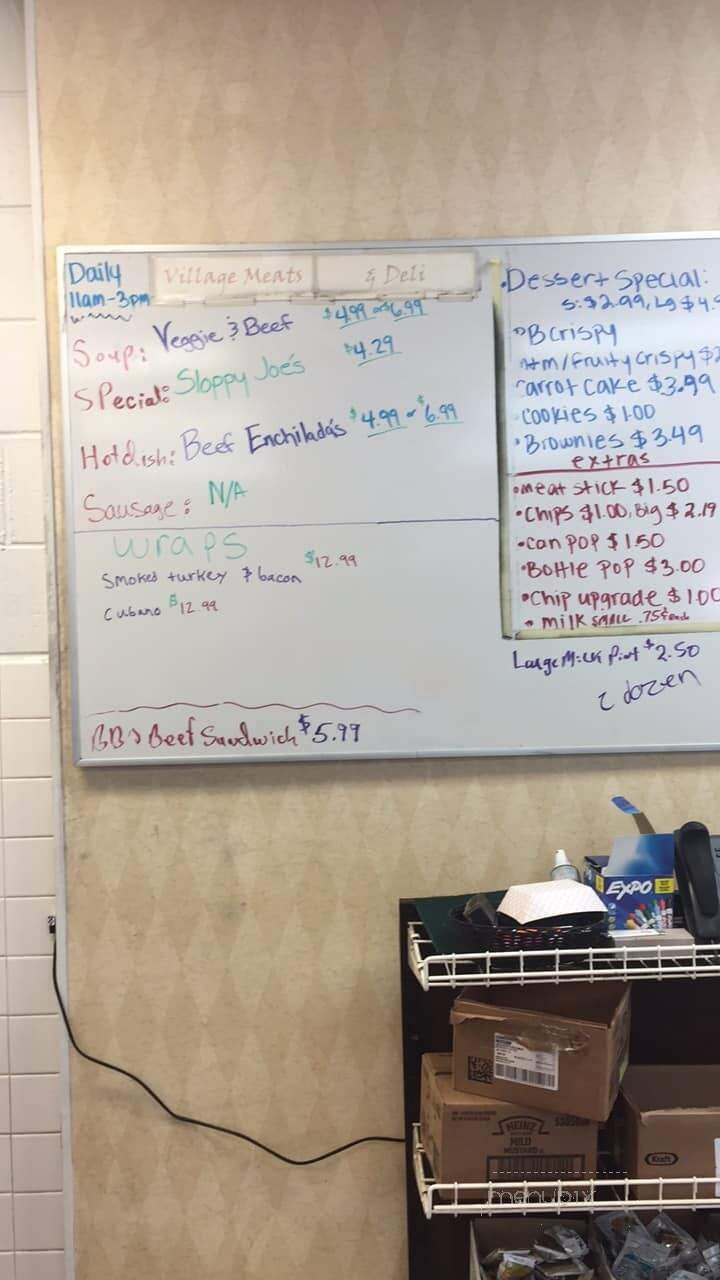 Daily
11am-3pm
Village Meats & Deli
Soup: Veggie & Beef $4.99 or $6.99
Special: Sloppy Joe's $4.29
Hotdish: Beef Enchilada's $4.99 or $6.99
Sausage: N/A
wraps
Smoked turkey & bacon $12.99
Cubano $12.99
BBQ Beef Sandwich $5.99
• Dessert Special:
S: $2.99, Lg $4.
• B crispy
m/fruity crispy $2
carrot cake $3.99
cookies $1.00
• Brownies $3.49
extras
• meat stick $1.50
• Chips $1.00, Big $2.19
• can pop $1.50
• Bottle pop $3.00
• Chip upgrade $1.00
• milk small .75¢ each
Large Milk Pint $2.50
2 dozen
EXPO
HEINZ
MILD
MUSTARD
Kraft
menupix